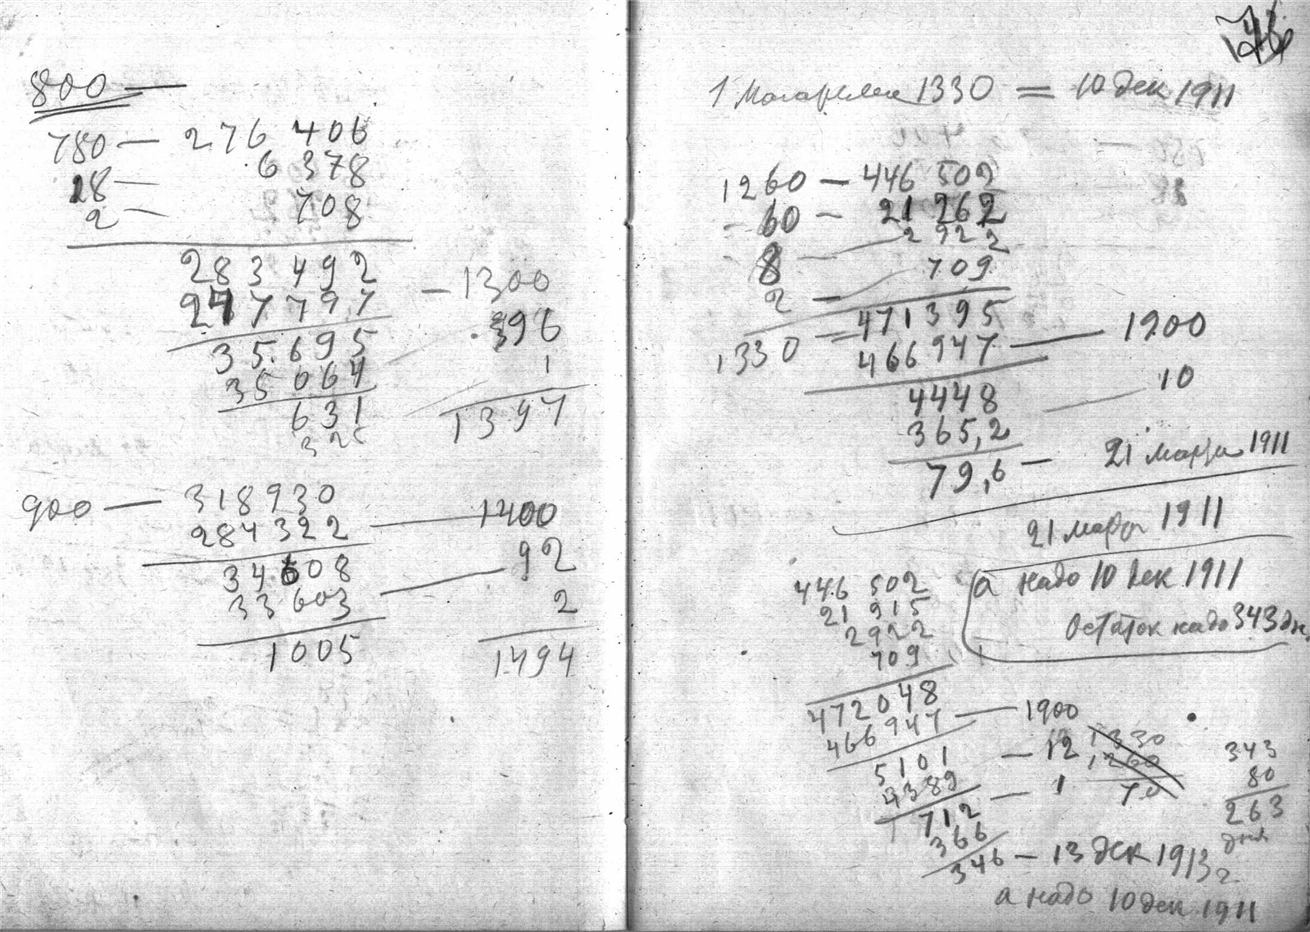 800 —
780 — 276 406
28 — 6 378
2 — 708
283 492
247 797 — 1300
35.695 396
35 064 1
631 1397
325
900 — 318930
284 322 — 1400
34608 92
33 603 2
1005 1494
76
1 Магаррема 1330 = 10 дек 1911
1260 — 446 502
60 — 21 262
8 — 2 922
2 — 709
1330 = 471395
466 947 — 1900
4448 10
365,2
79,6 — 21 марта 1911
21 марта 1911
а надо 10 дек 1911
Остаток надо 343 дн.
446 502
21 915
2922
709
472048
466947 — 1900
5101 — 12
4389 — 1
712
366
346 — 13 дек 1913
а надо 10 дек 1911
1330
1260
70
343
80
263
дня